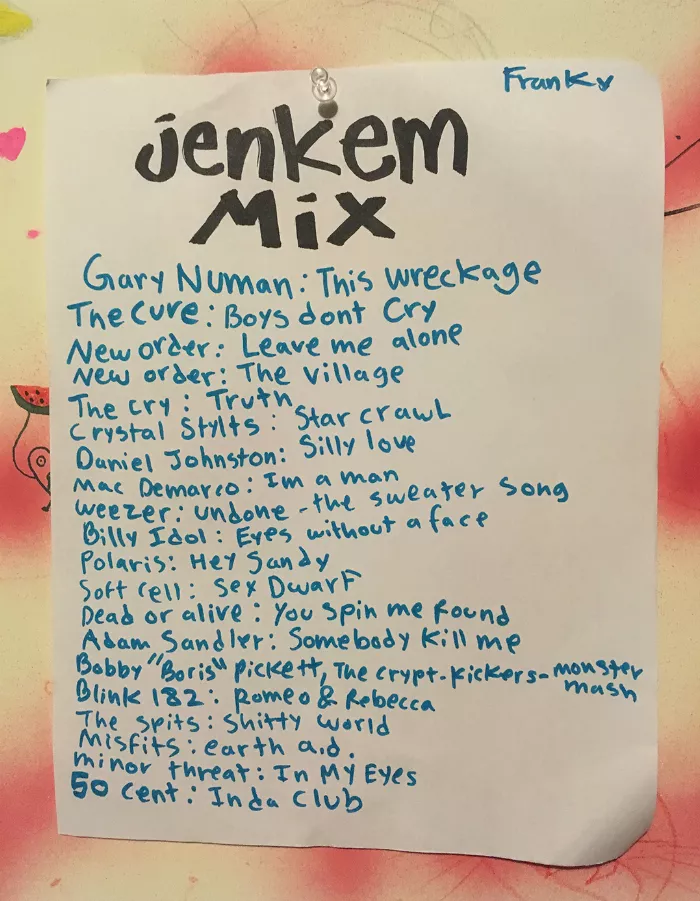 Franky
jenkem
Mix
Gary Numan: This wreckage
The Cure: Boys dont Cry
New order: Leave me alone
New order: The Village
The cry: Truth
Crystal Stylts: Star crawl
Daniel Johnston: Silly love
Mac Demarco: Im a man
weezer: undone - the sweater song
Billy Idol: Eyes without a face
Polaris: Hey Sandy
Soft cell: Sex Dwarf
Dead or alive: You spin me round
Adam Sandler: Somebody Kill me
Bobby "Boris" Pickett, The crypt-kickers-monster
mash
Blink 182: Romeo & Rebecca
The spits: Shitty world
Misfits: earth a.d.
minor threat: In My Eyes
50 cent: Inda Club